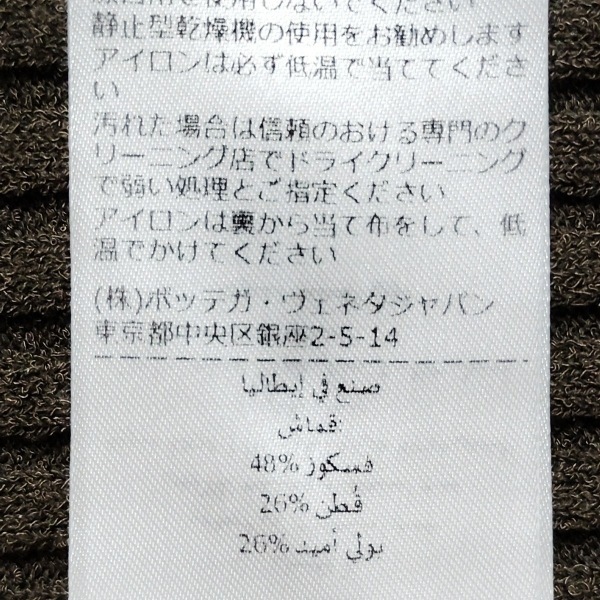 静止型乾燥機の使用をお勧めします
アイロンは必ず低温で当ててくださ
い
汚れた場合は信頼のおける専門のク
リーニング店でドライクリーニング
で弱い処理とご指定ください
アイロンは裏から当て布をして、低
温でかけてください
(株)ボッテガ・ヴェネタジャパン
東京都中央区銀座2-5-14
صنع في إيطاليا
قماش:
فسكوز %48
قُطن %26
بولي أميد %26